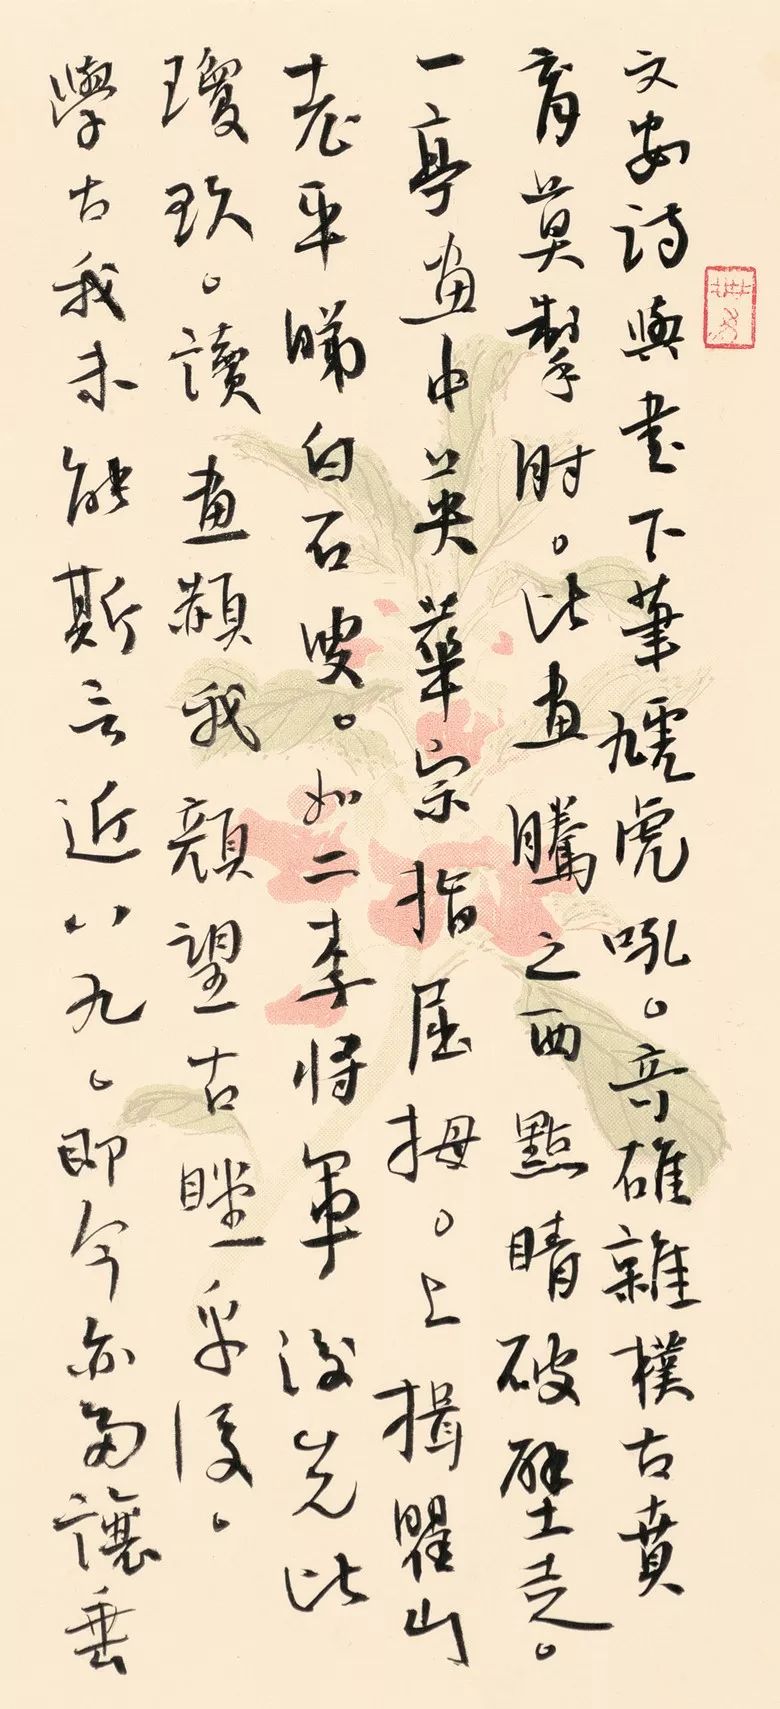 文安詩與書下筆虓虎吼。音雄雜樸古賁
育莫掣肘。此畫騰之西點睛破壁走。
一亭畫中英華宗指屈拇。上揖瞿山
老平睇白石叟。如二李將軍後先比
瓊玖。讀畫赬我顏望古瞠乎後。
學古我未能斯言近八九。即今亦多讓垂